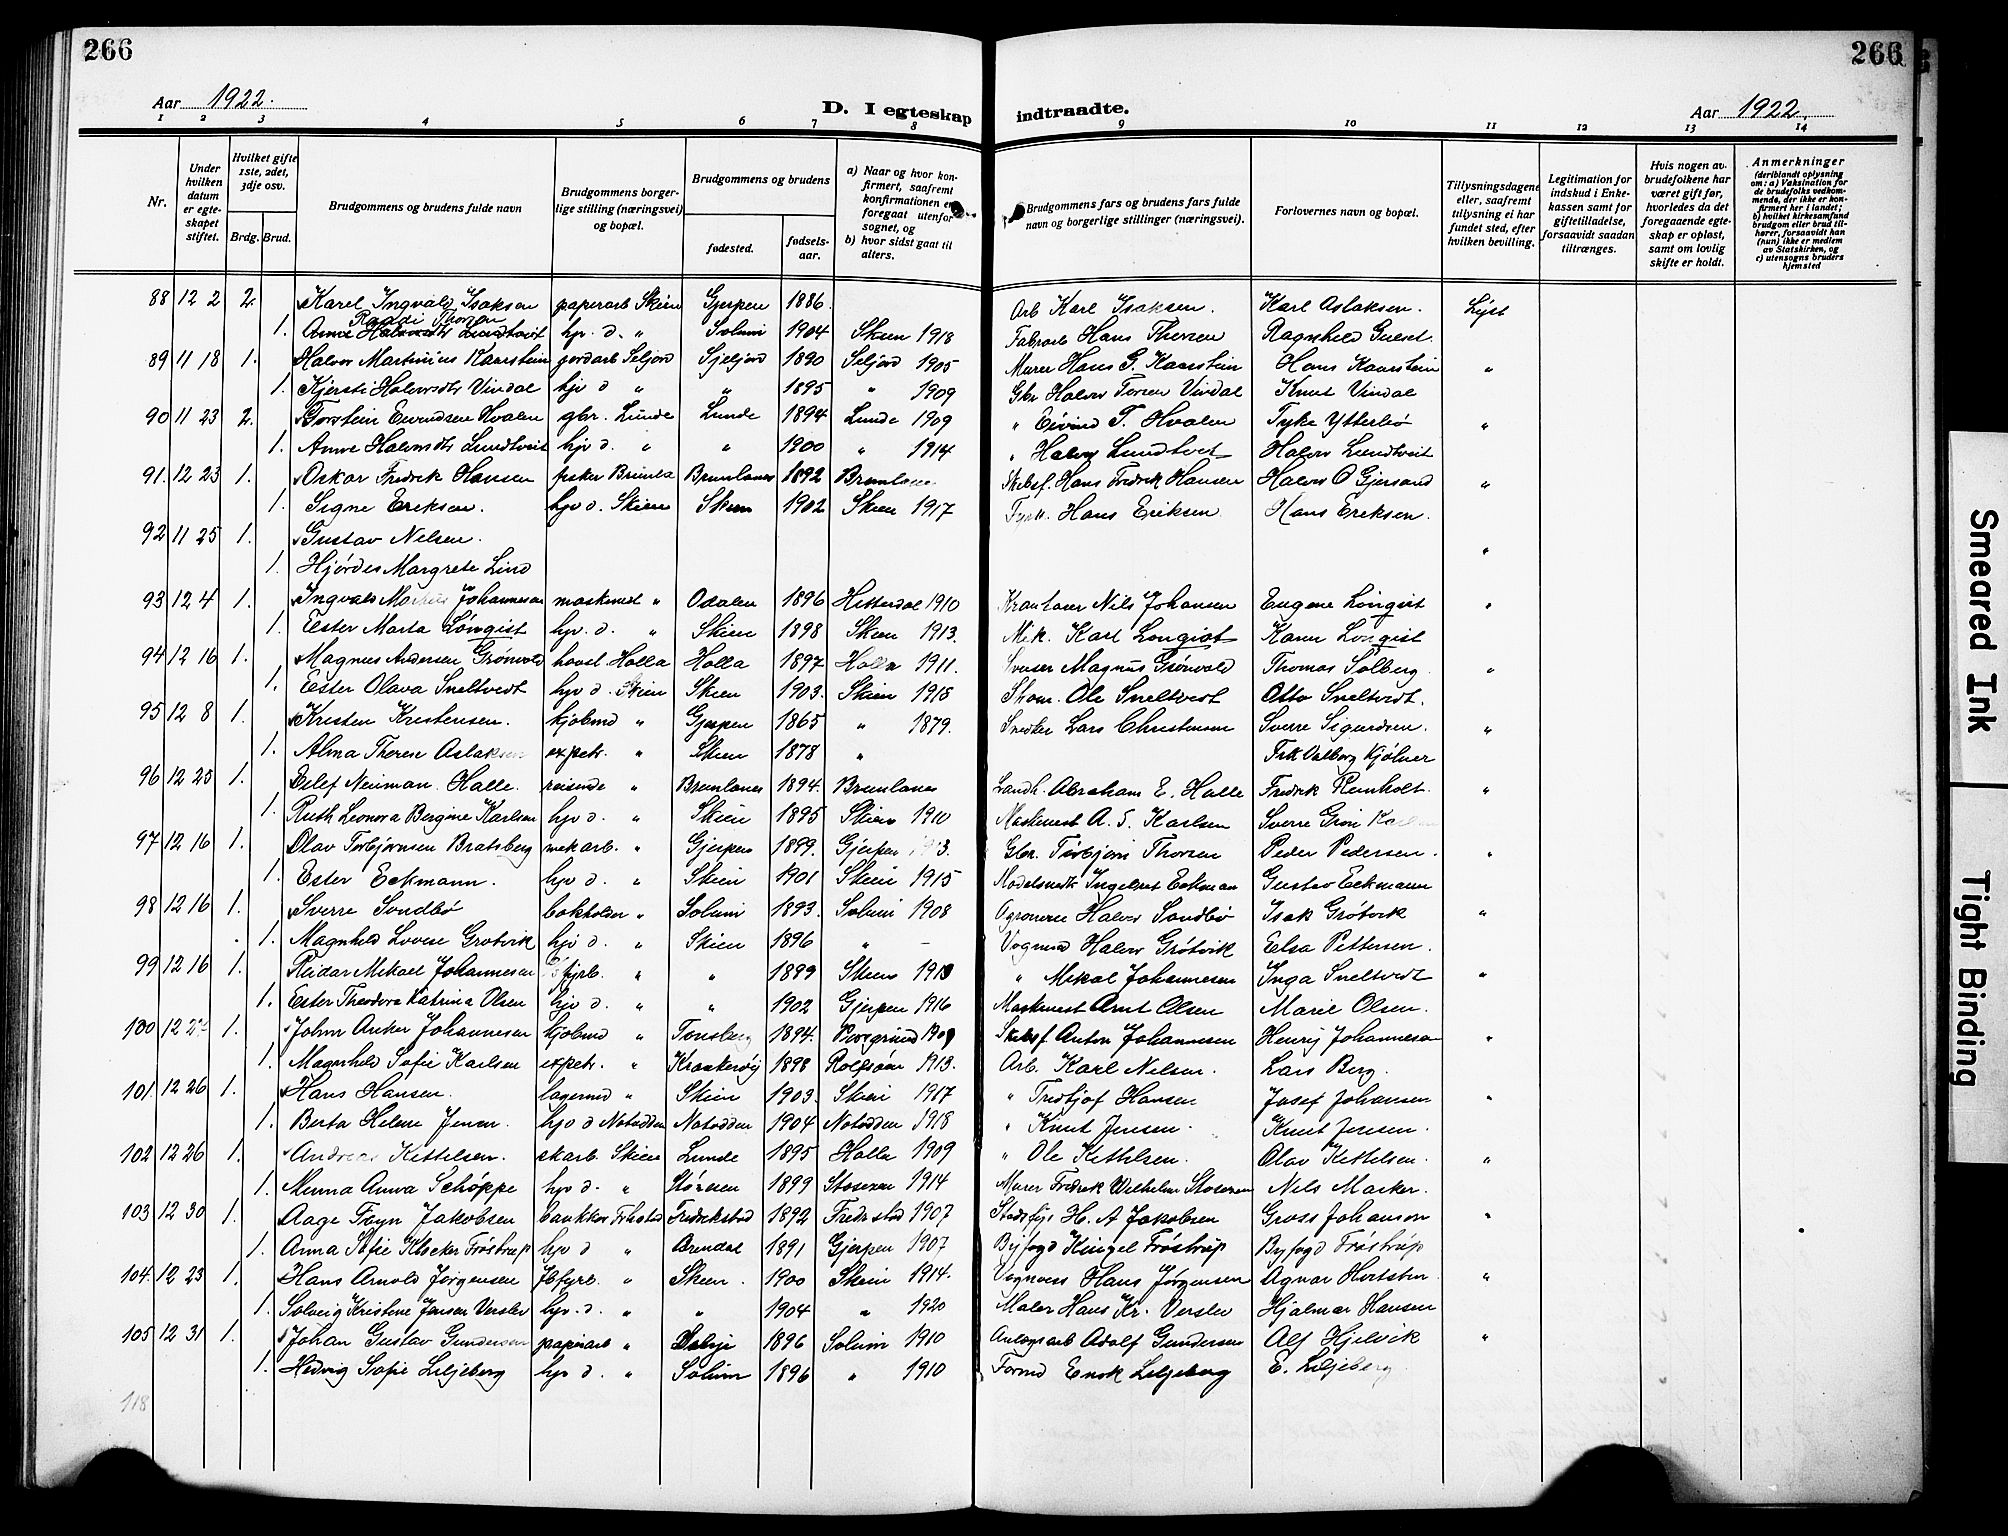 266
266
Aar 1922.
D. I egteskap indtraadte.
Aar 1922.
1 2 3 4 5 6 7 8 9 10 11 12 13 14
Nr.
Under hvilken datum er egteskapet stiftet.
Hvilket gifte 1ste, 2det, 3dje osv.
Brdg. Brud.
Brudgommens og brudens fulde navn
Brudgommens borgerlige stilling (næringsvei) og bopæl.
Brudgommens og brudens
fødested.
fødselsaar.
a) Naar og hvor konfirmert, saafremt konfirmationen er foregaat utenfor sognet, og
b) hvor sidst gaat til alters.
Brudgommens fars og brudens fars fulde navn og borgerlige stillinger (næringsvei).
Forlovernes navn og bopæl.
Tillysningsdagene eller, saafremt tillysning ei har fundet sted, efter hvilken bevilling.
Legitimation for indskud i Enkekassen samt for giftetilladelse, forsaavidt saadan tiltrænges.
Hvis nogen av brudefolkene har været gift før, hvorledes da det foregaaende egteskap er opløst, samt om lovlig skifte er holdt.
Anmerkninger (deriblandt oplysning om: a) Vaksination for de brudefolks vedkommende, der ikke er konfirmert her i landet; b) hvilket kirkesamfund brudgom eller brud tilhører, forsaavidt han (hun) ikke er medlem av Statskirken, og c) utensogns bruders hjemsted
88 12 2 2. Karel Ingvald Isaksen paperarb Skien Gjerpen 1886. Arb Karl Isaksen. Karl Aslaksen. Lyst
Ragnhild Thorsen
1. Anne Halvordts Lundtveit hjv. d. " Solum 1904 Skien 1918 Fabrarb Hans Thorsen Ragnhild Gulset.
89 11 18 1. Halvor Martinius Kaarstein gordarb Seljord Seljord 1890 Seljord 1905 Murer Hans G. Kaarstein Hans Kaarstein "
1. Kjersti Halvordts Vindal hjv d " " 1895 " 1909 Gbr Halvor Torsen Vindal Knut Vindal
90 11 23 2. Torstein Eivindsen Hvalen gbr. Lunde Lunde 1894 Lunde 1909 " Eivind T. Hvalen Tyke Ytterbø "
1. Anne Halvordts Lundtveit hjv d. " " 1900 " 1914 " Halvor Lundtvet Halvor Lundtveit
91. 12 23 1. Oskar Fredrik Hansen fisker Brunla Brunlanes 1892 Brunlanes Skibsf. Hans Fredrik Hansen Halvor O Gjersand "
1. Signe Eriksen. hjv d. Skien Skien 1902 Skien 1917 Hans Eriksen Hans Eriksen.
92 11 25 1. Gustav Nelsen. "
1. Hjørdis Margrete Lind
93 12 4 1. Ingvald Markus Johannesen maskinist " Odalen 1896 Hitterdal 1910 Kranfører Nils Johansen Eugene Lönqvist "
1. Ester Marta Lönqist hjv. d. " Skien 1898 Skien 1913. Mek. Karl Lonqist Karen Lonqist
94 12 16 1. Magnus Andersen Grönvold hovsl Holla Holla 1897 Holla 1911. Sveiser Magnus Grönvold Thomas Solberg. "
1. Ester Olava Sneltvedt hjv d. Skien Skien 1903. Skien 1918 Skom. Ole Sneltvedt Otto Sneltvedt.
95 12 8 1. Kristen Kristensen. kjobmd " Gjerpen 1865 " 1879. Snedker Lars Christensen Sverre Sigurdsen. "
1. Alma Therese Aslaksen expetr. " Skien 1878 " Frk Valborg Kjölner
96 12 25 1. Detlef Neuman Halle. reisende " Brunlanes 1894. Brunlanes Landh. Abraham E. Halle Fredrik Reinholt. "
1. Ruth Leonora Bergine Karlsen hjv d. " Skien 1895 Skien 1910 Maskinist A. S. Karlsen Sverre Grini
97 12 16 1. Olav Torbjørnsen Bratsberg mekarb. " Gjerpen 1899. Gjerpen Gbr. Torbjørn Thorsen Peder Pedersen. "
1. Ester Eckmann. hjv d. " Skien 1901 Skien 1915 Modelsnedk Ingebret Eckman Gustav Eckmann
98 12 16 1. Sverre Sondbö bokholder " Solum 1893. Solum 1908 Agronom Halvor Sondbö Isak Grötvik "
1. Magnhild Lovise Grotvik hjv d. " Skien 1896 " – Vognmd Halvor Grötvik Elsa Pettersen.
99 12 16 1. Reidar Mikael Johannesen fyrb. " " 1899 Skien 1913 " Mikal Johannesen Inga Sneltvedt "
1. Ester Theodora Katrina Olsen hjv d. " " 1902 Gjerpen 1916 Maskinist Arnt Olsen Marie Olsen.
100 12 1. Johan Anker Johannesen kjobmd " Tonsberg 1894. Porsgrund 1909 Skibsf Anton Johannesen Henry Johannesen "
1. Magnhild Sofie Karlsen expetr. " Kraakeröy 1898 Rolfsöen 1913. Arb. Karl Nelsen. Lars Berg.
101. 12 26 1. Hans Hansen. lagermd " Skien 1903. Skien 1917 " Tredtjof Hansen Josef Johansen "
1. Berta Helene Jensen. hjv d Notodden Notodden 1904 Notodden 1918 " Knut Jensen. Knut Jensen.
102 12 26 1. Andreas Kittelsen. skarb. Skien Lunde 1895 Holla 1909 " Ole Kittelsen. Olav Kittelsen. "
1. Minna Anna Schöppe hjv d. " 1899 1914 Murer Fredrik Wilhelm Nils Masker.
103 12 30 1. Aage Fayn Jakobsen bankkas Frkstad Fredrikstad 1892 Fredrstad 1907 H. A Jakobsen Gross Johanson "
1. Anna Sofie Klocker Fröstrup hjv d " Arendal 1891 Gjerpen 1907 Byfogd Kingel Fröstrup Byfogd Fröstrup
104. 12 23 1. Hans Arnold Jørgensen Jbfyrb. " Skien. 1900 Skien 1914. Hans Jørgensen Agnar "
1. Solveig Kristine Jensen Verslev hjv. d. " " 1904 " 1920 Maler Hans Kr. Verslev Hjalmar Hansen
105 12 31 1. Johan Gustav Gundersen papirarb " 1896 Solum 1910 Anlægsarb Adolf Gundersen Alf Hjelvik "
1. Hedvig Sofie Liljeberg hjv d. " Solum 1896 " 1910 Formd Enok Liljeberg E. Liljeberg
118
Smeared Ink
Tight Binding